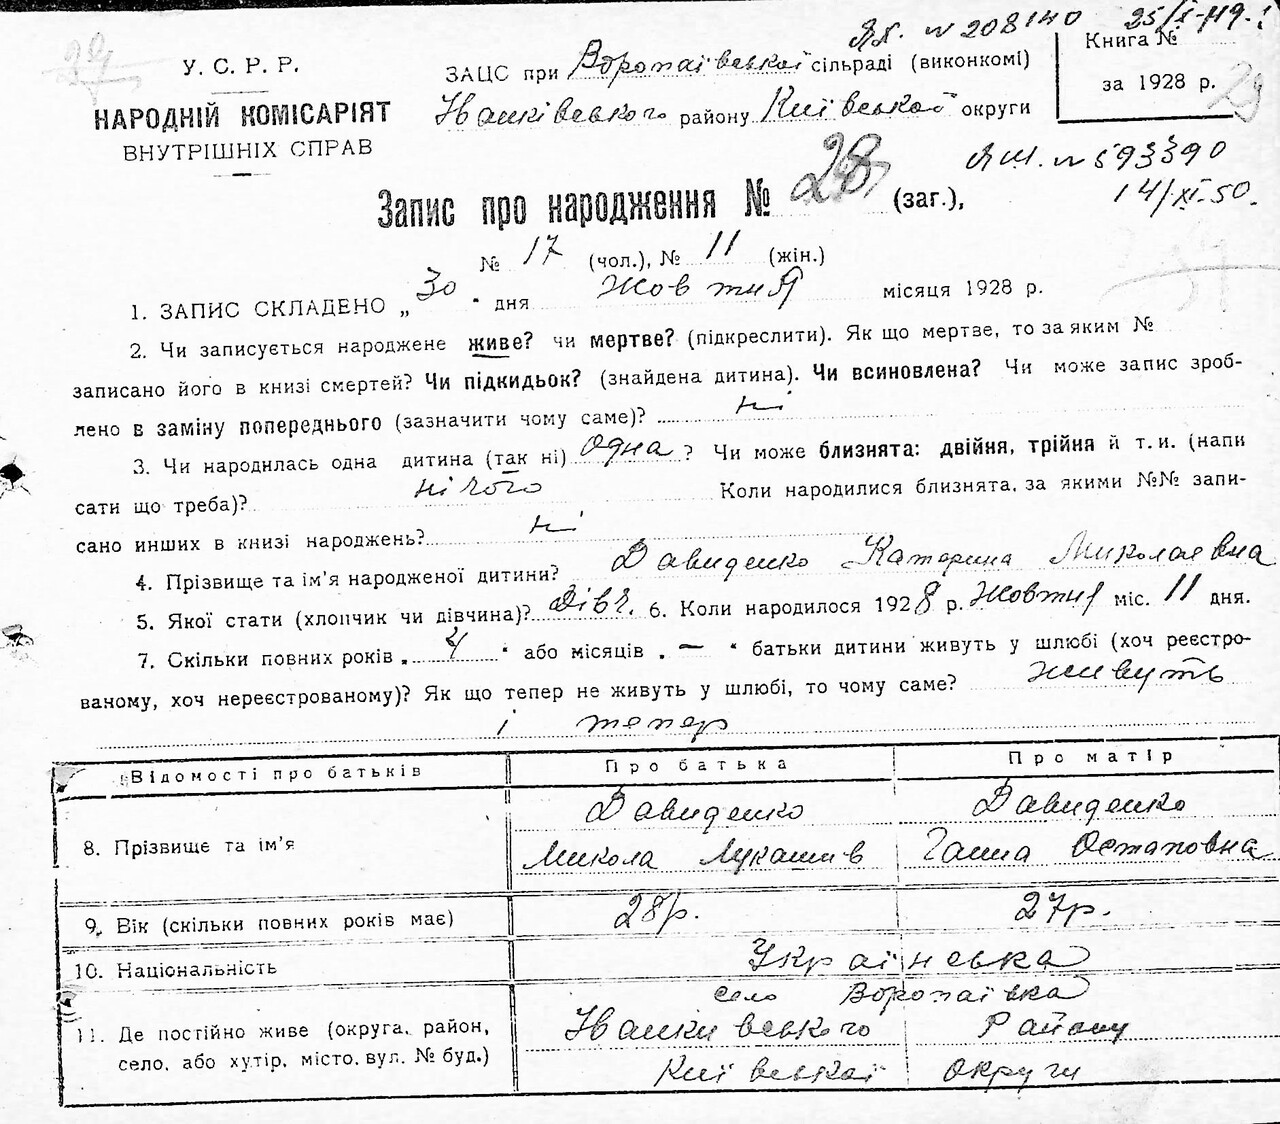 ЯХ. N 208140 25/X-49.
27
У. С. Р. Р.
НАРОДНІЙ КОМІСАРІЯТ
ВНУТРІШНІХ СПРАВ
ЗАЦС при Воропаївській сільраді (виконкомі)
Іванківського району Київської округи
Книга №
за 1928 р.
29
ЯШ. N 593390
14/XI-50.
Запис про народження № 28 (заг.),
№ 17 (чол.), № 11 (жін.)
1. ЗАПИС СКЛАДЕНО „ 30 " дня Жовтня місяця 1928 р.
2. Чи записується народжене живе? чи мертве? (підкреслити). Як що мертве, то за яким №
записано його в книзі смертей? Чи підкидьок? (знайдена дитина). Чи всиновлена? Чи може запис зроб-
лено в заміну попереднього (зазначити чому саме)? ні
3. Чи народилась одна дитина (так ні) одна ? Чи може близнята: двійня, трійня й т. и. (напи
сати що треба)? нічого Коли народилися близнята, за якими №№ запи-
сано инших в книзі народжень? ні
4. Прізвище та ім'я народженої дитини? Давиденко Катерина Миколаївна
5. Якої стати (хлопчик чи дівчина)? Дівч. 6. Коли народилося 1928 р. Жовтня міс. 11 дня.
7. Скільки повних років „ 4 " або місяців „ — " батьки дитини живуть у шлюбі (хоч реєстро-
ваному, хоч нереєстрованому)? Як що тепер не живуть у шлюбі, то чому саме? живуть
і тепер
Відомості про батьків Про батька Про матір
8. Прізвище та ім'я Давиденко Давиденко
Микола Лукашів Ганна Остаповна
9. Вік (скільки повних років має) 28 р. 27 р.
10. Національність Українська
село Воропаївка
11. Де постійно живе (округа, район, Іванківського Району
село, або хутір, місто, вул. № буд.) Київської округи